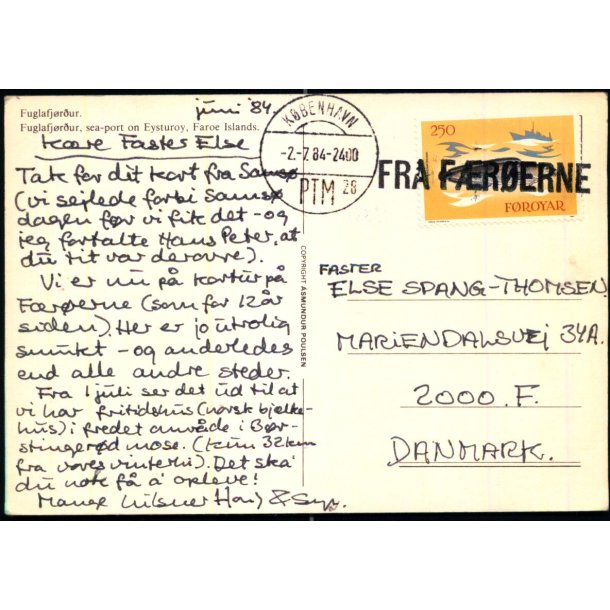 juni '84
Fuglafjørður.
Fuglafjørður, sea-port on Eysturoy, Faroe Islands.
Kære Faster Else
Tak for dit kort fra Samsø
(vi sejlede forbi Samsø
dagen før vi fik det - og
jeg fortalte Hans Peter, at
du tit var derovre).
Vi er nu på kortur på
Færøerne (som for 12 år
siden). Her er jo utrolig
smukt - og anderledes
end alle andre steder.
Fra 1 juli ser det ud til at
vi har fritidshus (norsk bjælke-
hus) i fredet område i Bør-
stingerød mose. (kun 32 km
fra vores vinterhi). Det ska'
du nok få å opleve!
Mange hilsner
KØBENHAVN
-2.-7.84-2400
PTM 28
FRA FÆRØERNE
250
FØROYAR
COPYRIGHT ÁSMUNDUR POULSEN
FASTER
ELSE SPANG-THOMSEN
MARIENDALSVEJ 34A.
2000. F.
DANMARK.